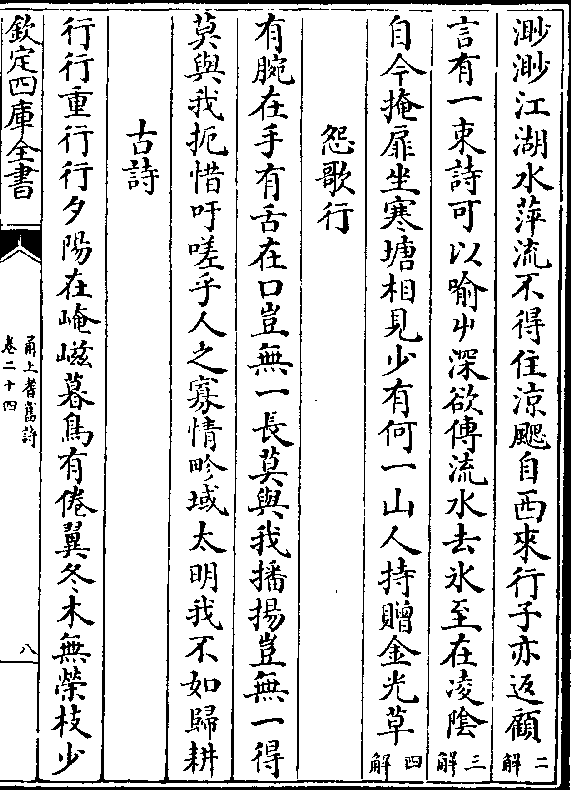 渺渺江湖水萍流不得住涼颸自西來行子亦返顧二解
言有一束詩可以喻中深欲傳流水去氷至在凌陰三解
自今掩扉坐寒塘相見少有何一山人持贈金光草四解
怨歌行
有腕在手有舌在口豈無一長莫與我播揚豈無一得
莫與我扼惜吁嗟乎人之寡情畛域太明我不如歸耕
古詩
行行重行行夕陽在崦嵫暮鳥有倦翼冬木無榮枝少
欽定四庫全書
甬上耆舊詩
卷二十四
八